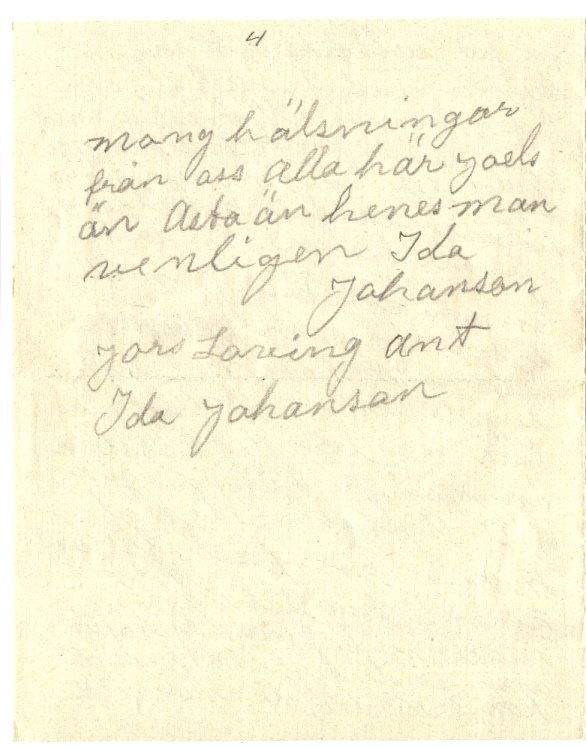 4
mong hälsningar
från oss alla här yoels
än Asta än henes man
venligen Ida
Johanson
yors Loving ant
Ida Johanson